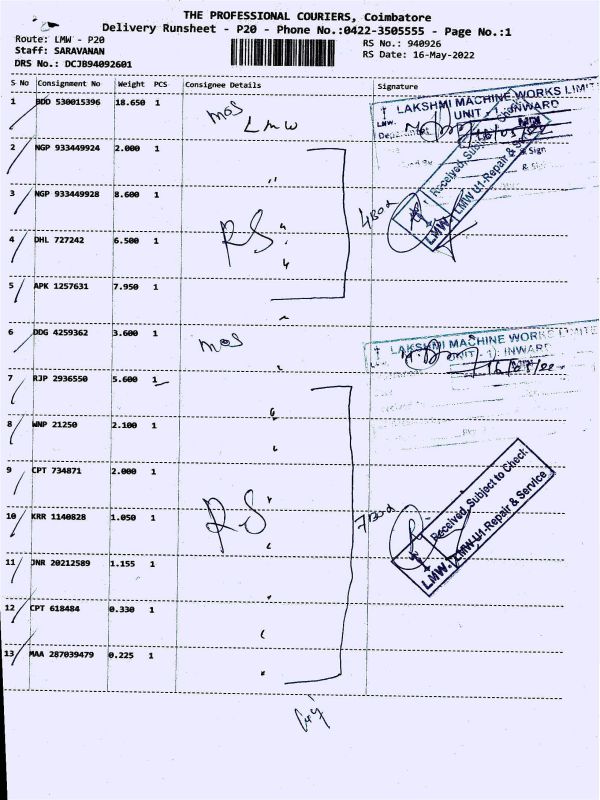 THE PROFESSIONAL COURIERS, Coimbatore
Delivery Runsheet - P20 - Phone No.:0422-3505555 - Page No.:1
Route: LMW - P20
RS No.: 940926
Staff: SARAVANAN
RS Date: 16-May-2022
DRS No.: DCJB94092601
S No Consignment No Weight PCS Consignee Details Signature
1 BDD 530015396 18.650 1 mos
LMW
LAKSHMI MACHINE WORKS LIMIT
UNIT - 1 INWARD
16/05/22
2 NGP 933449924 2.000 1
& Sign
Received, Subject to Check
LMW. LMW U1-Repair & Se
3 NGP 933449928 8.600 1
RS
4 Box
4 DHL 727242 6.500 1
5 APK 1257631 7.950 1
6 DDG 4259362 3.600 1 mos
LAKSHMI MACHINE WORKS LIMITE
UNIT - 1: INWARD
16/05/22
7 RJP 2936550 5.600 1
8 WNP 21250 2.100 1
9 CPT 734871 2.000 1
Received, Subject to Check
LMW. LMW U1-Repair & Service
10 KRR 1140828 1.050 1
RS
7 Box
11 JNR 20212589 1.155 1
12 CPT 618484 0.330 1
13 MAA 287039479 0.225 1